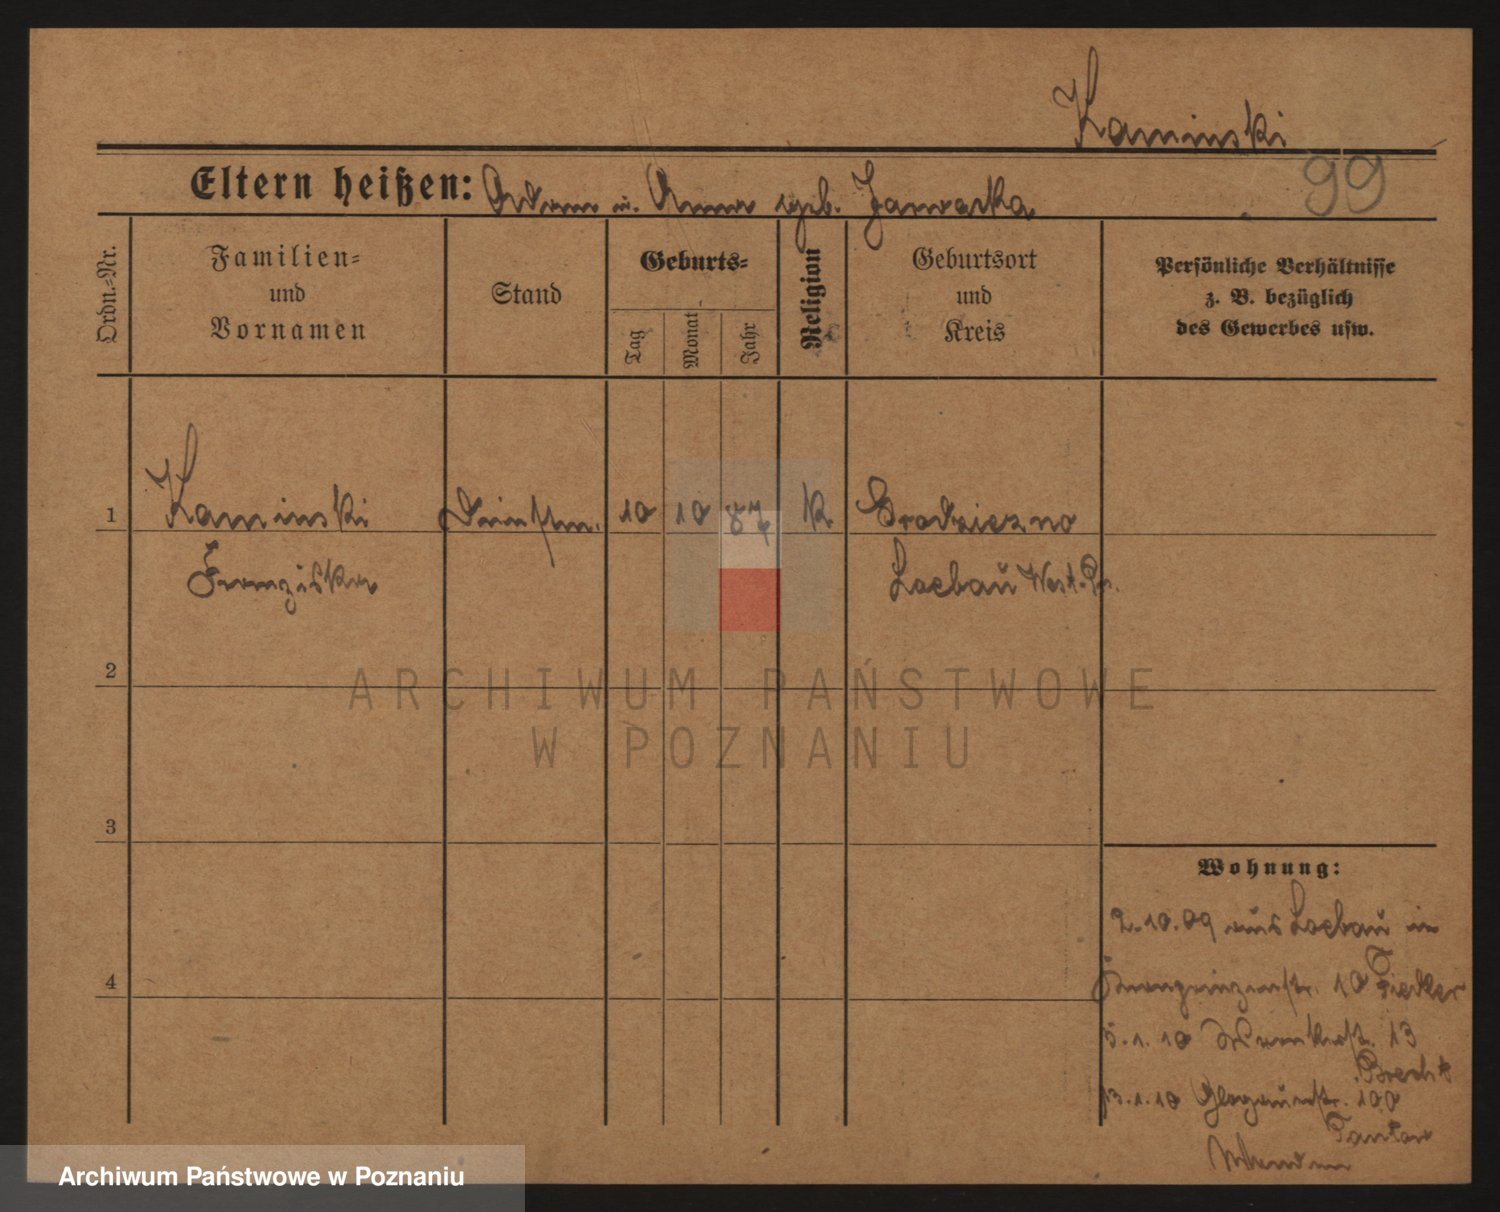 Kaminski
99
Eltern heißen: Adam u. Anna geb. Jaworska
Ordn.=Nr.
Familien=
und
Vornamen
Stand
Geburts=
Tag
Monat
Jahr
Religion
Geburtsort
und
Kreis
Persönliche Verhältnisse
z. B. bezüglich
des Gewerbes usw.
1
Kaminski
10 10 87
K.
Grodziczno
Franziska
Loebau West-Pr.
2
3
4
Wohnung:
2.10.09 aus Loebau in
Kronprinzenstr. 10 Fiedler
5.1.10 13
Brecht
13.1.10 Glogauerstr. 100
ARCHIWUM PAŃSTWOWE
W POZNANIU
Archiwum Państwowe w Poznaniu